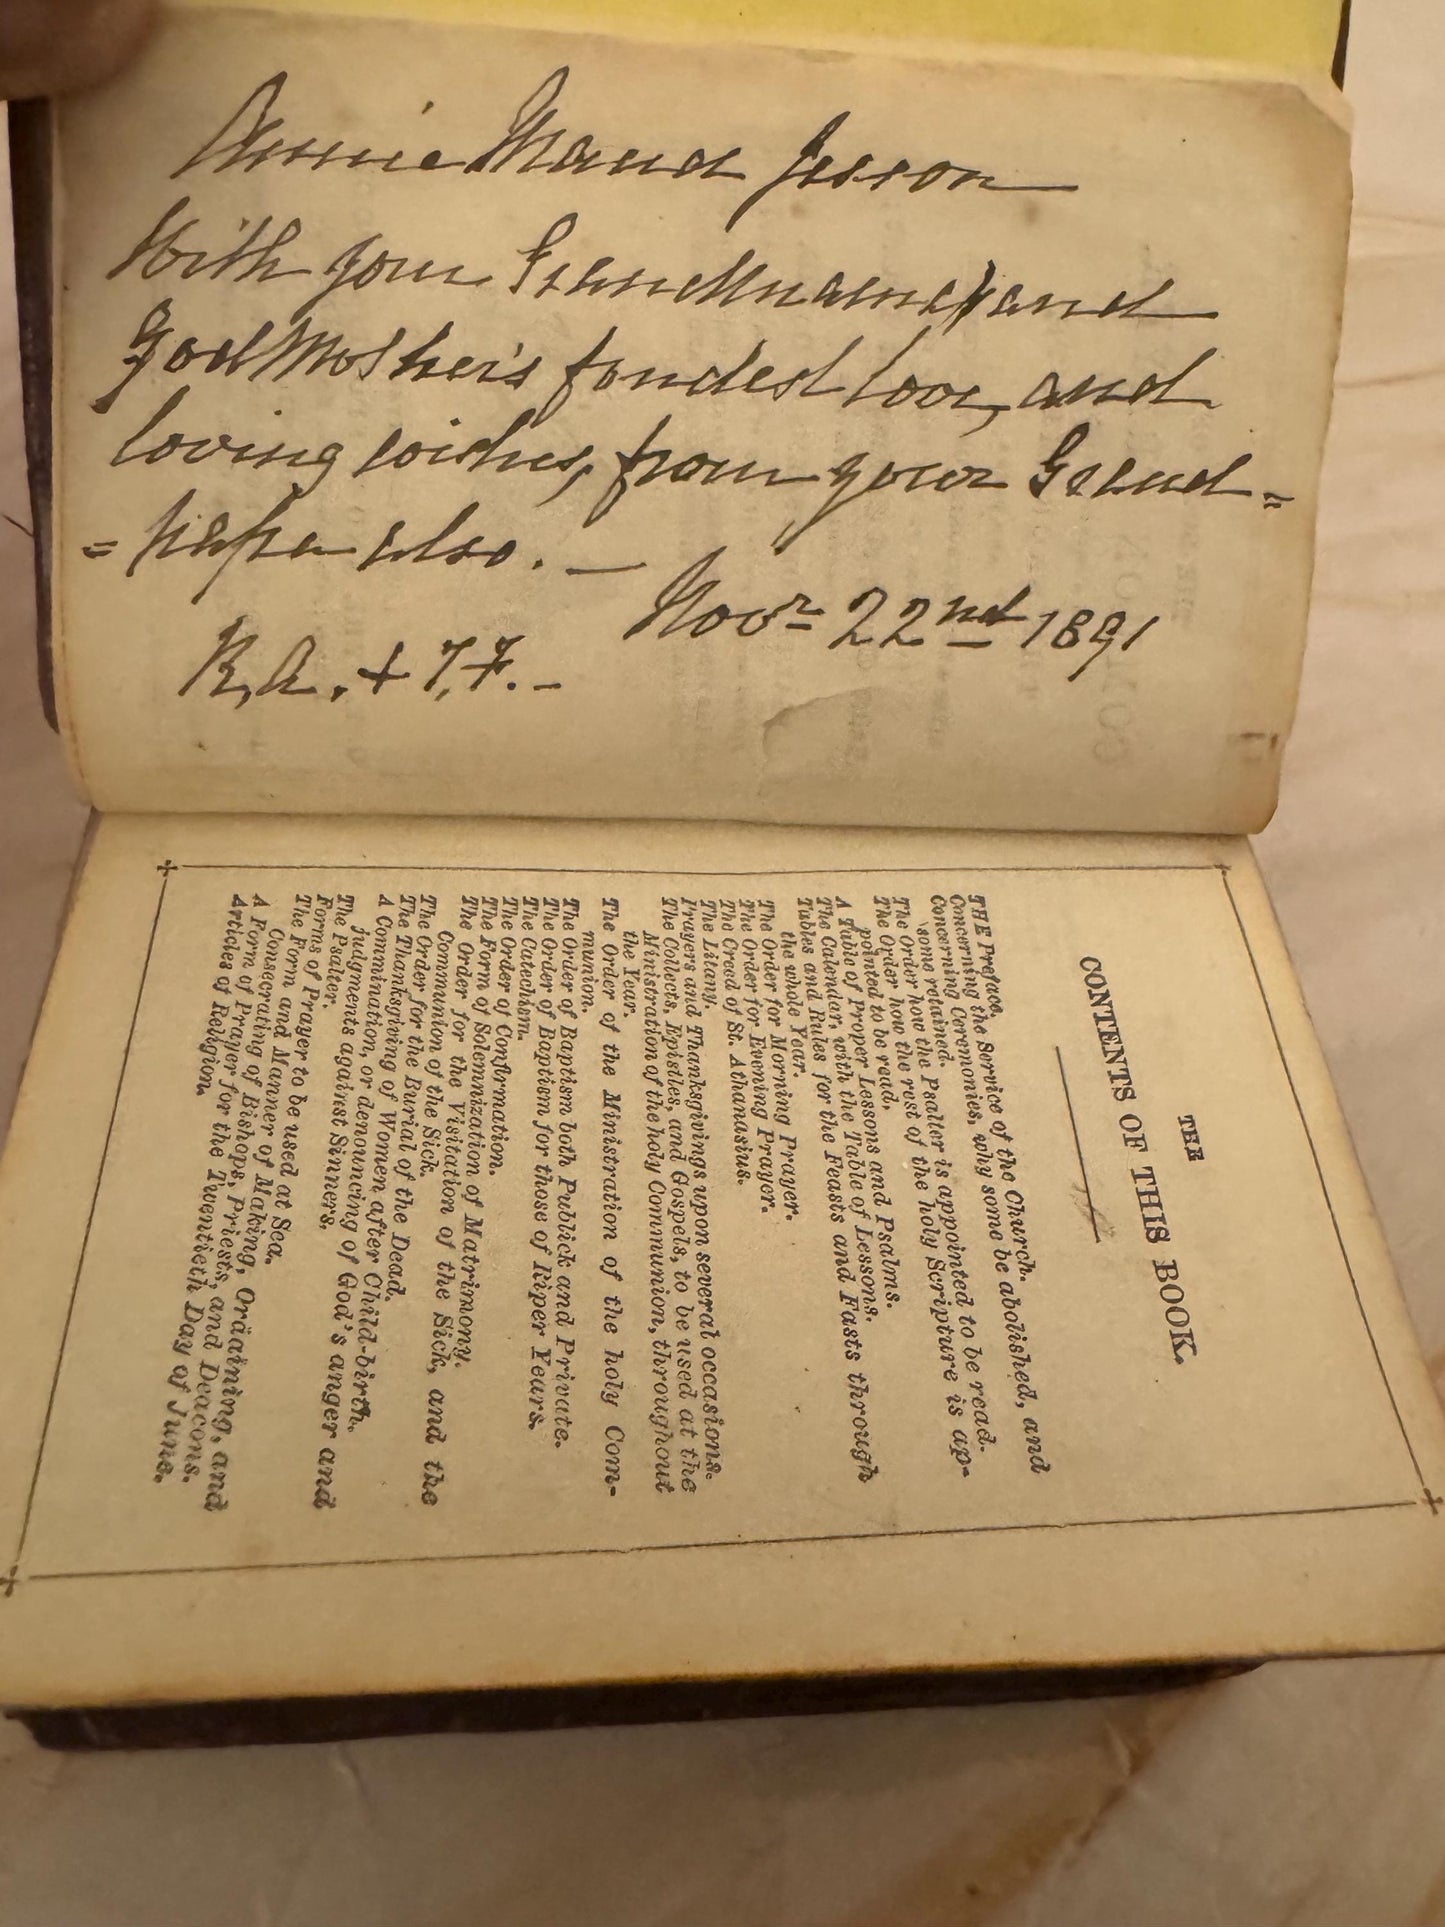 Annie Maud Jesson
With your GrandMama's and
GodMother's fondest love, and
loving wishes, from your Grand=
=papa also. —
Novr 22nd 1891
R, A. + 7,7. –
THE
CONTENTS OF THIS BOOK.
THE Preface.
Concerning the Service of the Church.
Concerning Ceremonies, why some be abolished, and
some retained.
The Order how the Psalter is appointed to be read.
The Order how the rest of the holy Scripture is ap-
pointed to be read.
A Table of Proper Lessons and Psalms.
The Calendar, with the Table of Lessons.
Tables and Rules for the Feasts and Fasts through
the whole Year.
The Order for Morning Prayer.
The Order for Evening Prayer.
The Creed of St. Athanasius.
The Litany.
Prayers and Thanksgivings upon several occasions.
The Collects, Epistles, and Gospels, to be used at the
Ministration of the holy Communion, throughout
the Year.
The Order of the Ministration of the holy Com-
munion.
The Order of Baptism both Publick and Private.
The Order of Baptism for those of Riper Years.
The Catechism.
The Order of Confirmation.
The Form of Solemnization of Matrimony.
The Order for the Visitation of the Sick, and the
Communion of the Sick.
The Order for the Burial of the Dead.
The Thanksgiving of Women after Child-birth.
A Commination, or denouncing of God's anger and
judgments against Sinners.
The Psalter.
Forms of Prayer to be used at Sea.
The Form and Manner of Making, Ordaining, and
Consecrating of Bishops, Priests, and Deacons.
A Form of Prayer for the Twentieth Day of June.
Articles of Religion.